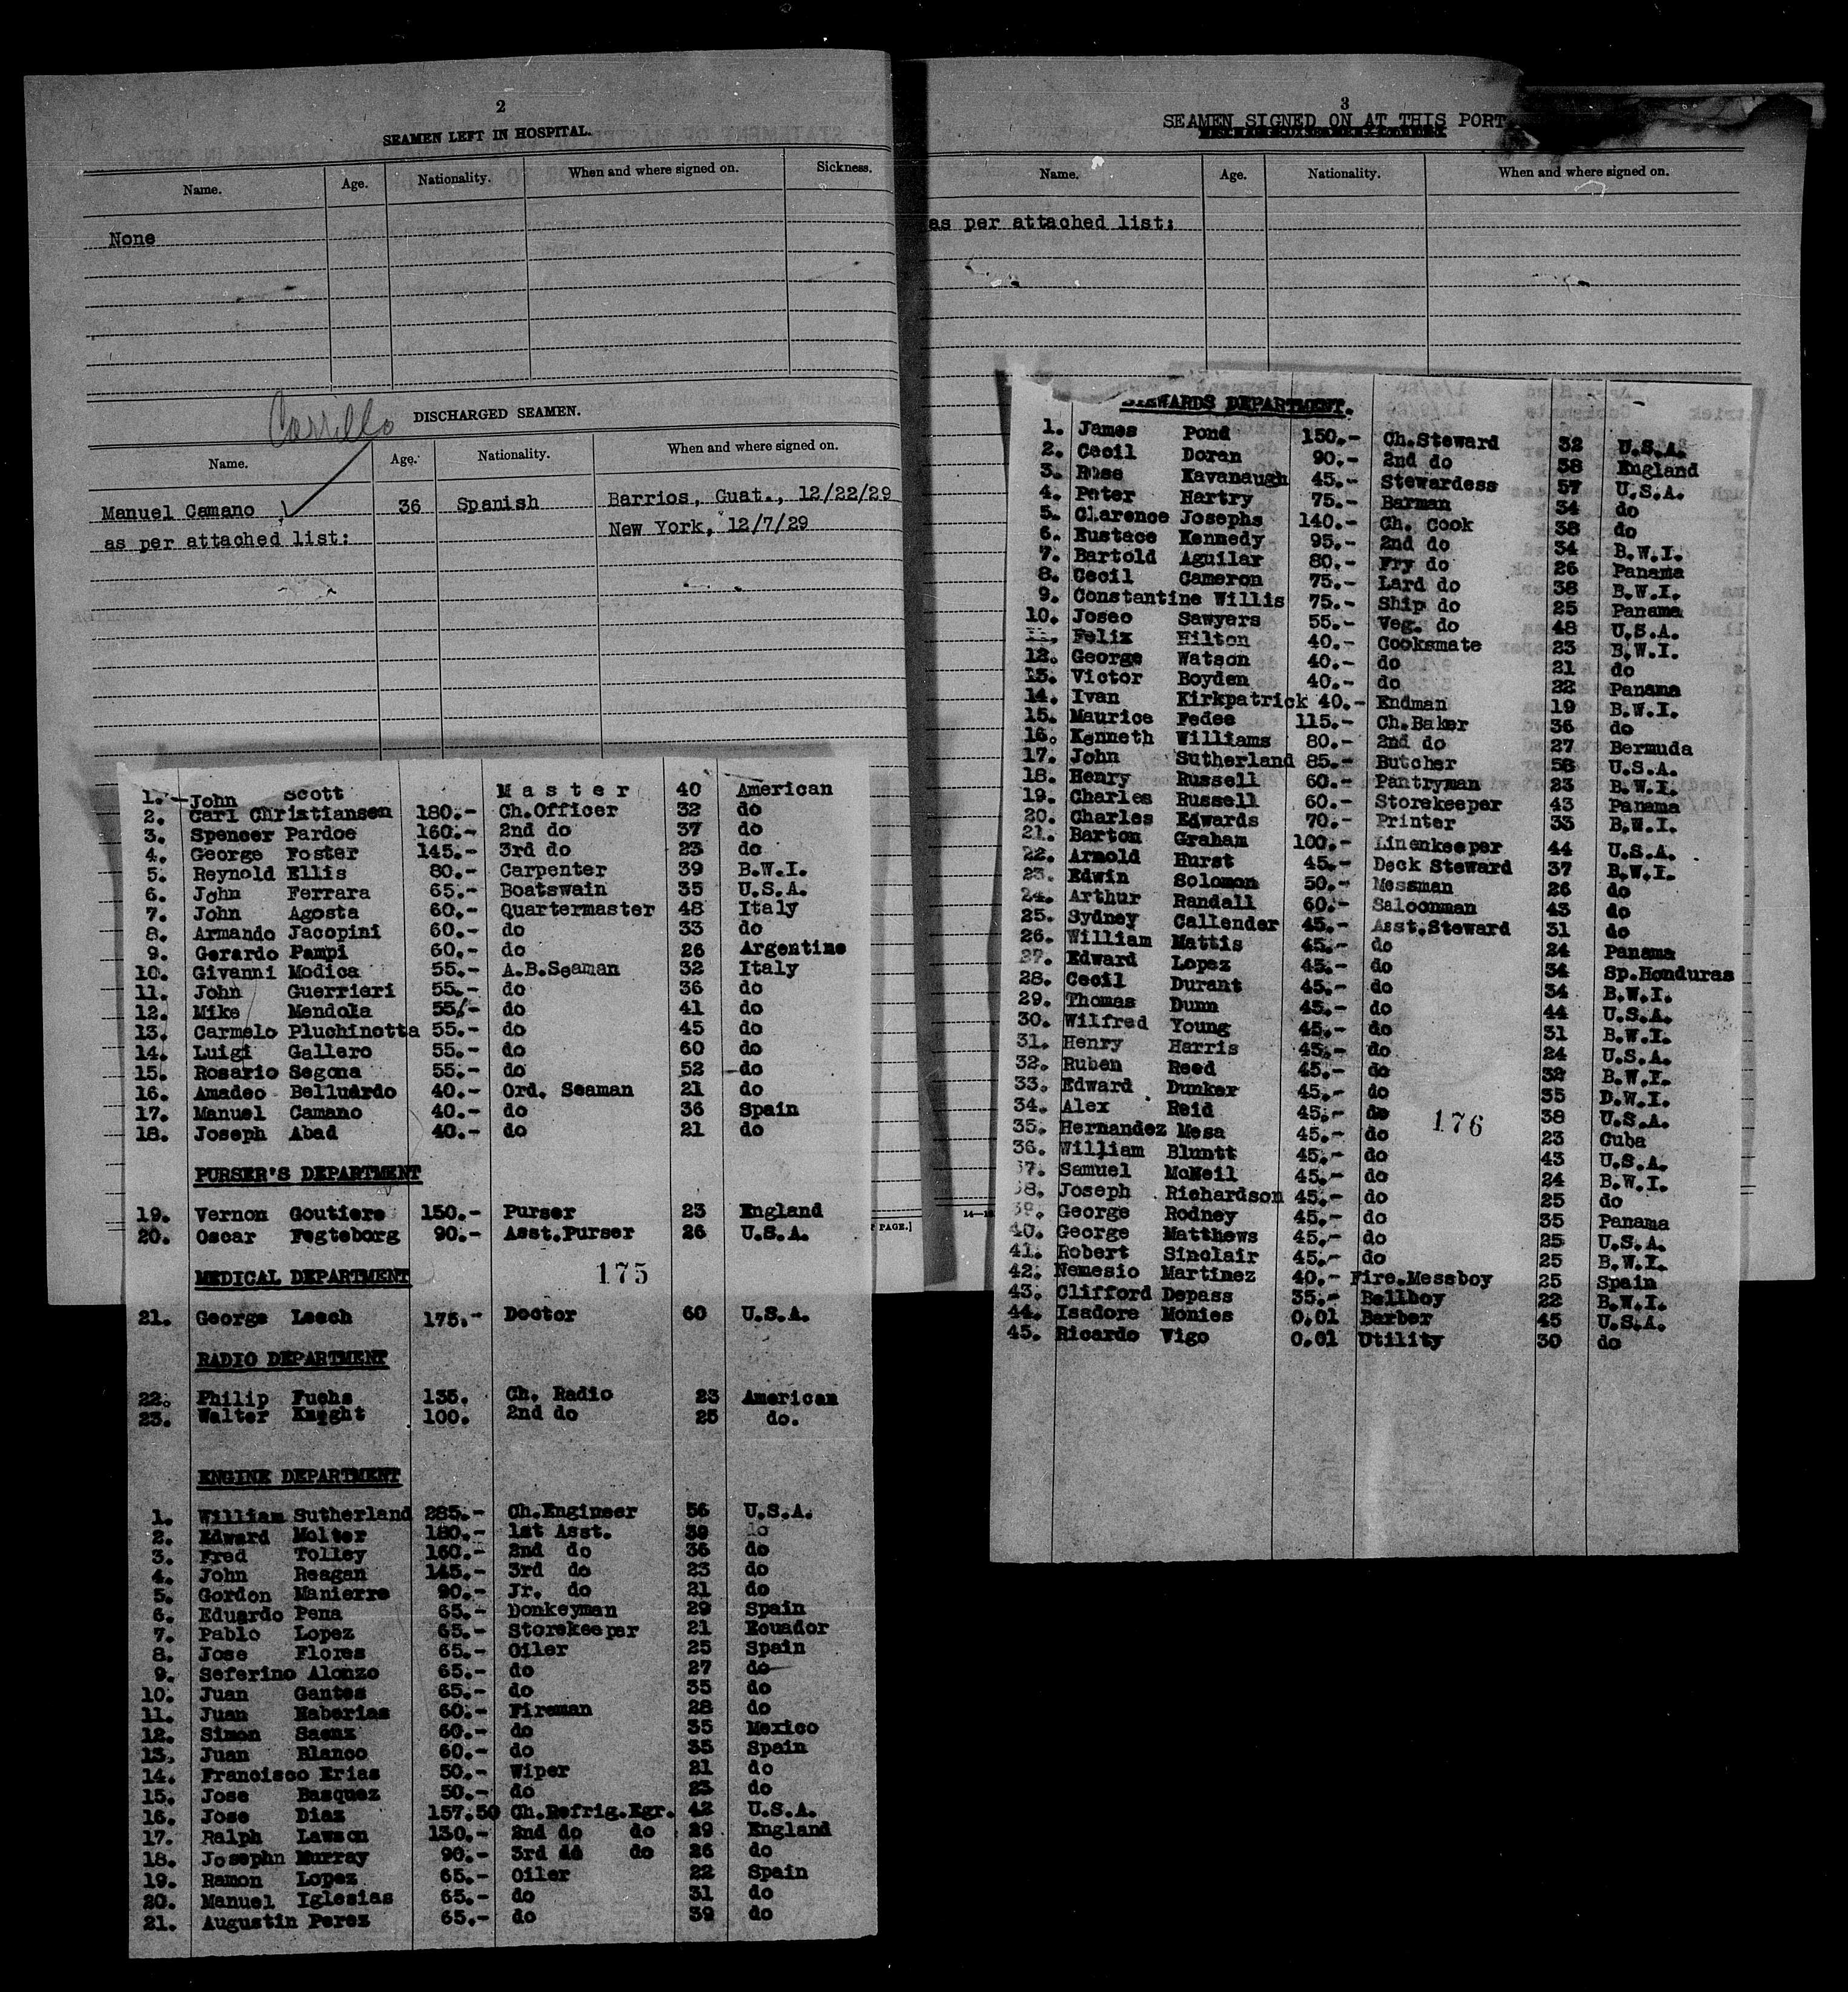 2
SEAMEN LEFT IN HOSPITAL.
Name. Age. Nationality. When and where signed on. Sickness.
None
Carrillo
DISCHARGED SEAMEN.
Name. Age. Nationality. When and where signed on.
Manuel Camano 36 Spanish Barrios, Guat., 12/22/29
as per attached list: New York, 12/7/29
1. John Scott Master 40 American
2. Carl Christiansen 180.- Ch.Officer 32 do
3. Spencer Pardoe 160.- 2nd do 37 do
4. George Foster 145.- 3rd do 23 do
5. Reynold Ellis 80.- Carpenter 39 B.W.I.
6. John Ferrara 65.- Boatswain 35 U.S.A.
7. John Agosta 60.- Quartermaster 48 Italy
8. Armando Jacopini 60.- do 33 do
9. Gerardo Pampi 60.- do 26 Argentine
10. Givanni Modica 55.- A.B.Seaman 32 Italy
11. John Guerrieri 55.- do 36 do
12. Mike Mendola 55.- do 41 do
13. Carmelo Pluchinotta 55.- do 45 do
14. Luigi Gallero 55.- do 60 do
15. Rosario Segona 55.- do 52 do
16. Amadeo Belluardo 40.- Ord. Seaman 21 do
17. Manuel Camano 40.- do 36 Spain
18. Joseph Abad 40.- do 21 do
PURSER'S DEPARTMENT
19. Vernon Goutiere 150.- Purser 23 England
20. Oscar Fegteborg 90.- Asst.Purser 26 U.S.A.
MEDICAL DEPARTMENT 175
21. George Leech 175.- Doctor 60 U.S.A.
RADIO DEPARTMENT
22. Philip Fuchs 135. Ch. Radio 23 American
23. Walter Knight 100. 2nd do 25 do.
ENGINE DEPARTMENT
1. William Sutherland 285.- Ch.Engineer 56 U.S.A.
2. Edward Molter 180.- 1st Asst. 39 do
3. Fred Tolley 160.- 2nd do 36 do
4. John Reagan 145.- 3rd do 23 do
5. Gordon Manierre 90.- Jr. do 21 do
6. Eduardo Pena 65.- Donkeyman 29 Spain
7. Pablo Lopez 65.- Storekeeper 21 Ecuador
8. Jose Flores 65.- Oiler 25 Spain
9. Seferino Alonzo 65.- do 27 do
10. Juan Gantes 65.- do 35 do
11. Juan Naberias 60.- Fireman 28 do
12. Simon Saenz 60.- do 35 Mexico
13. Juan Blanco 60.- do 35 Spain
14. Francisco Erias 50.- Wiper 21 do
15. Jose Basquez 50.- do 23 do
16. Jose Diaz 157.50 Ch.Refrig.Egr. 42 U.S.A.
17. Ralph Lawson 130.- 2nd do do 29 England
18. Josephn Murray 90.- 3rd do do 26 do
19. Ramon Lopez 65.- Oiler 22 Spain
20. Manuel Iglesias 65.- do 31 do
21. Augustin Perez 65.- do 39 do
PAGE.]
3
SEAMEN SIGNED ON AT THIS PORT
Name. Age. Nationality. When and where signed on.
as per attached list:
STEWARDS DEPARTMENT.
1. James Pond 150.- Ch.Steward 32 U.S.A.
2. Cecil Doran 90.- 2nd do 38 England
3. Rose Kavanaugh 45.- Stewardess 57 U.S.A.
4. Peter Hartry 75.- Barman 34 do
5. Clarence Josephs 140.- Ch. Cook 38 do
6. Eustace Kennedy 95.- 2nd do 34 B.W.I.
7. Bartold Aguilar 80.- Fry do 26 Panama
8. Cecil Cameron 75.- Lard do 38 B.W.I.
9. Constantine Willis 75.- Ship do 25 Panama
10. Joseo Sawyers 55.- Veg. do 48 U.S.A.
11. Felix Hilton 40.- Cooksmate 23 B.W.I.
12. George Watson 40.- do 21 do
13. Victor Boyden 40.- do 22 Panama
14. Ivan Kirkpatrick 40.- Endman 19 B.W.I.
15. Maurice Fedee 115.- Ch.Baker 36 do
16. Kenneth Williams 80.- 2nd do 27 Bermuda
17. John Sutherland 85.- Butcher 58 U.S.A.
18. Henry Russell 60.- Pantryman 23 B.W.I.
19. Charles Russell 60.- Storekeeper 43 Panama
20. Charles Edwards 70.- Printer 33 B.W.I.
21. Barton Graham 100.- Linenkeeper 44 U.S.A.
22. Arnold Hurst 45.- Deck Steward 37 B.W.I.
23. Edwin Solomon 50.- Messman 26 do
24. Arthur Randall 60.- Saloonman 43 do
25. Sydney Callender 45.- Asst.Steward 31 do
26. William Mattis 45.- do 24 Panama
27. Edward Lopez 45.- do 34 Sp.Honduras
28. Cecil Durant 45.- do 34 B.W.I.
29. Thomas Dunn 45.- do 44 U.S.A.
30. Wilfred Young 45.- do 31 B.W.I.
31. Henry Harris 45.- do 24 U.S.A.
32. Ruben Reed 45.- do 32 B.W.I.
33. Edward Dunker 45.- do 35 D.W.I.
34. Alex Reid 45.- do 38 U.S.A.
176
35. Hernandez Mesa 45.- do 23 Cuba
36. William Bluntt 45.- do 43 U.S.A.
37. Samuel McNeil 45.- do 24 B.W.I.
38. Joseph Richardson 45.- do 25 do
39. George Rodney 45.- do 35 Panama
40. George Matthews 45.- do 25 U.S.A.
41. Robert Sinclair 45.- do 25 B.W.I.
42. Nemesio Martinez 40.- Fire.Messboy 25 Spain
43. Clifford Depass 35.- Bellboy 22 B.W.I.
44. Isadore Monies 0.01 Barber 45 U.S.A.
45. Ricardo Vigo 0.01 Utility 30 do